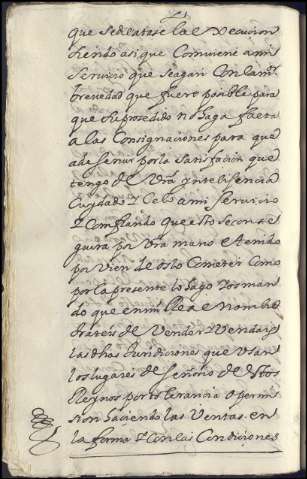 que se dilatase la execucion
siendo asi que combiene a mi
servicio que se agan con la m.
brevedad que fuere posible para
que su procedido no haga falta
a las Consignaciones para que
a de servir por la satisfacion que
tengo de Vra yntelixencia
Cuydado y Celo a mi servicio
y Confiando que esto se conse
guira por Vra mano e tenido
por vien de os lo Cometer Como
por la presente lo hago y os man
do que en mi lle a e nombre
trateis de Vender y Vendais
las dhas Jurisdiciones que Usan
los lugares de señorio de estos
Reynos por tolerancia o permi
sion haciendo las Ventas en
la forma y con las Condiciones